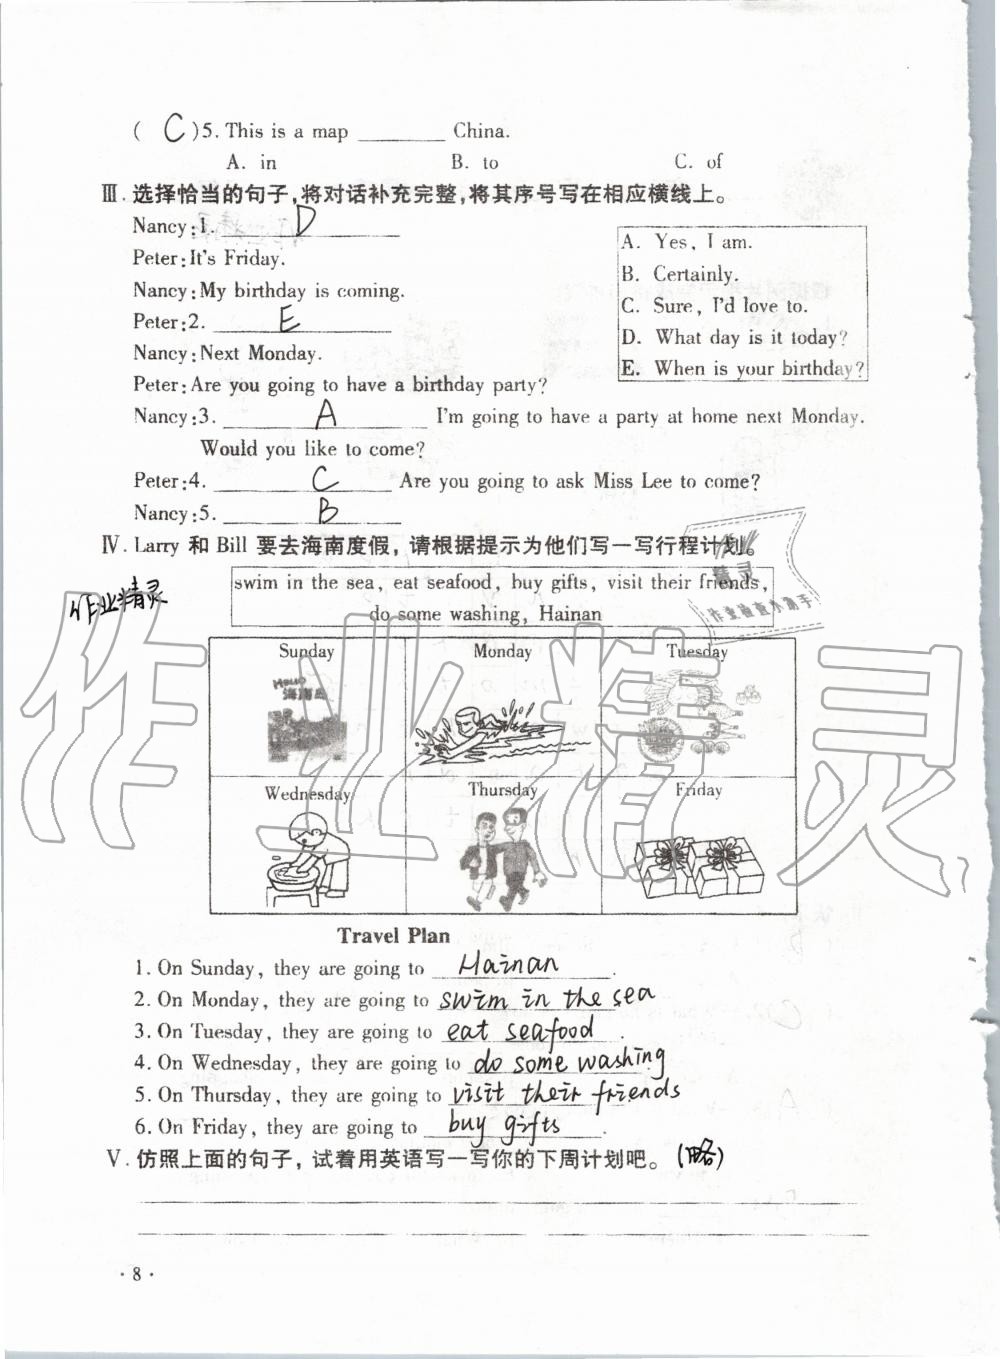 ( C )5. This is a map ________ China.
A. in B. to C. of
Ⅲ. 选择恰当的句子,将对话补充完整,将其序号写在相应横线上。
Nancy:1. D
Peter:It's Friday.
Nancy:My birthday is coming.
Peter:2. E
Nancy:Next Monday.
Peter:Are you going to have a birthday party?
Nancy:3. A I'm going to have a party at home next Monday.
Would you like to come?
Peter:4. C Are you going to ask Miss Lee to come?
Nancy:5. B
A. Yes, I am.
B. Certainly.
C. Sure, I'd love to.
D. What day is it today?
E. When is your birthday?
Ⅳ. Larry 和 Bill 要去海南度假, 请根据提示为他们写一写行程计划。
作业精灵
swim in the sea, eat seafood, buy gifts, visit their friends,
do some washing, Hainan
Sunday Monday Tuesday
Hello
海南岛
Wednesday Thursday Friday
作业精灵
Travel Plan
1. On Sunday, they are going to Hainan.
2. On Monday, they are going to swim in the sea
3. On Tuesday, they are going to eat seafood.
4. On Wednesday, they are going to do some washing.
5. On Thursday, they are going to visit their friends
6. On Friday, they are going to buy gifts.
Ⅴ. 仿照上面的句子, 试着用英语写一写你的下周计划吧。(略)
· 8 ·